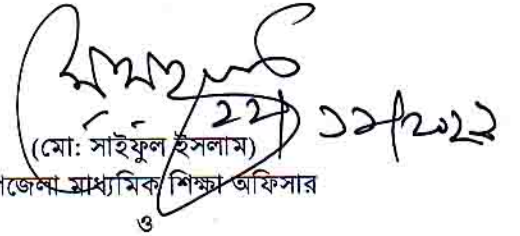 ২২/১১/২০২২
(মো: সাইফুল ইসলাম)
জেলা মাধ্যমিক শিক্ষা অফিসার
ও